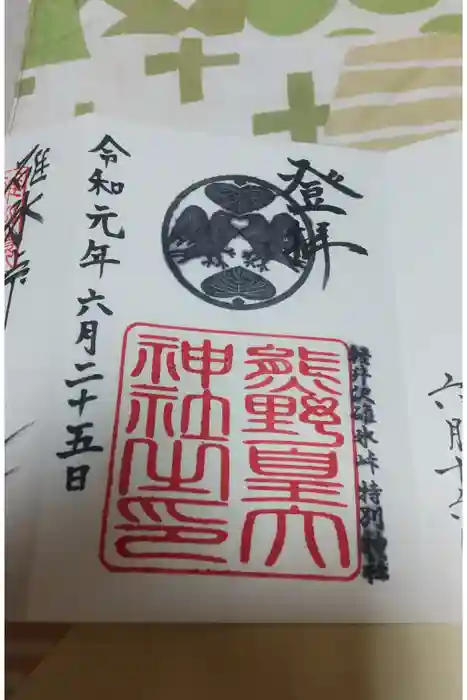 登拝
軽井沢碓氷峠 特別神社
熊野皇大
神社之印
令和元年 六月二十五日
碓氷峠
六月十